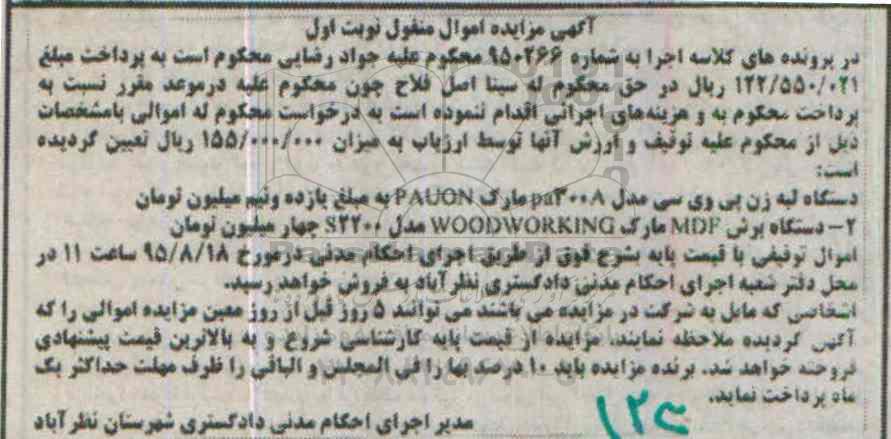 آگهی مزایده اموال منقول نوبت اول
در پرونده های کلاسه اجرا به شماره ۹۵۰۲۶۶ محکوم علیه جواد رضایی محکوم است به پرداخت مبلغ
۱۲۲/۵۵۰/۰۲۱ ریال در حق محکوم له سینا اصل فلاح چون محکوم علیه درموعد مقرر نسبت به
پرداخت محکوم به و هزینه‌های اجرائی اقدام ننموده است به درخواست محکوم له اموالی بامشخصات
ذیل از محکوم علیه توقیف و ارزش آنها توسط ارزیاب به میزان ۱۵۵/۰۰۰/۰۰۰ ریال تعیین گردیده
است:
دستگاه لبه زن پی وی سی مدل pa۳۰۰۸ مارک PAUON به مبلغ یازده ونیم میلیون تومان
۲- دستگاه برش MDF مارک WOODWORKING مدل S۳۲۰۰ چهار میلیون تومان
اموال توقیفی با قیمت پایه بشرح فوق از طریق اجرای احکام مدنی درمورخ ۹۵/۸/۱۸ ساعت ۱۱ در
محل دفتر شعبه اجرای احکام مدنی دادگستری نظرآباد به فروش خواهد رسید.
اشخاصی که مایل به شرکت در مزایده می باشند می توانند ۵ روز قبل از روز معین مزایده اموالی را که
آگهی گردیده ملاحظه نمایند. مزایده از قیمت پایه کارشناسی شروع و به بالاترین قیمت پیشنهادی
فروخته خواهد شد. برنده مزایده باید ۱۰ درصد بها را فی المجلس و الباقی را ظرف مهلت حداکثر یک
ماه پرداخت نماید.
مدیر اجرای احکام مدنی دادگستری شهرستان نظرآباد